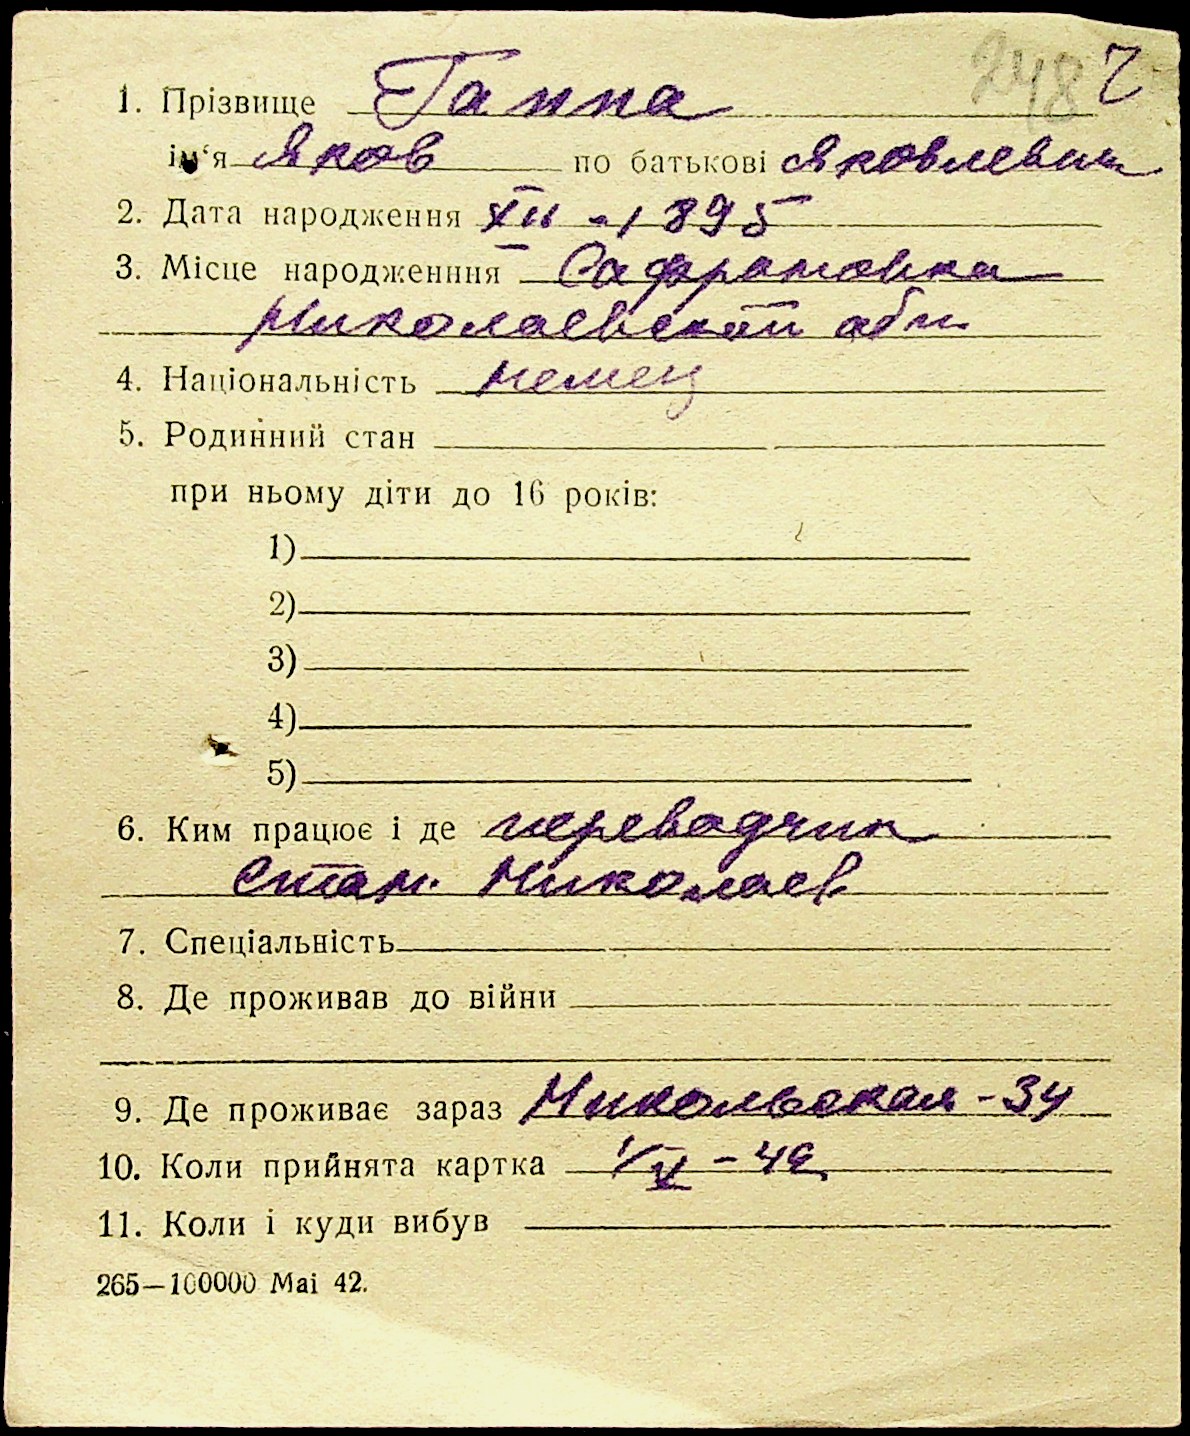 248 2
1. Прізвище Ганна
ім‘я Яков по батькові Яковлевич
2. Дата народження XII - 1895
3. Місце народженння Сафроновка
Николаевской обл.
4. Національність немец
5. Родинний стан
при ньому діти до 16 років:
1)
2)
3)
4)
5)
6. Ким працює і де переводчик
стан. Николаев
7. Спеціальність
8. Де проживав до війни
9. Де проживає зараз Никольская - 34
10. Коли прийнята картка 1/V - 42
11. Коли і куди вибув
265—100000 Mai 42.